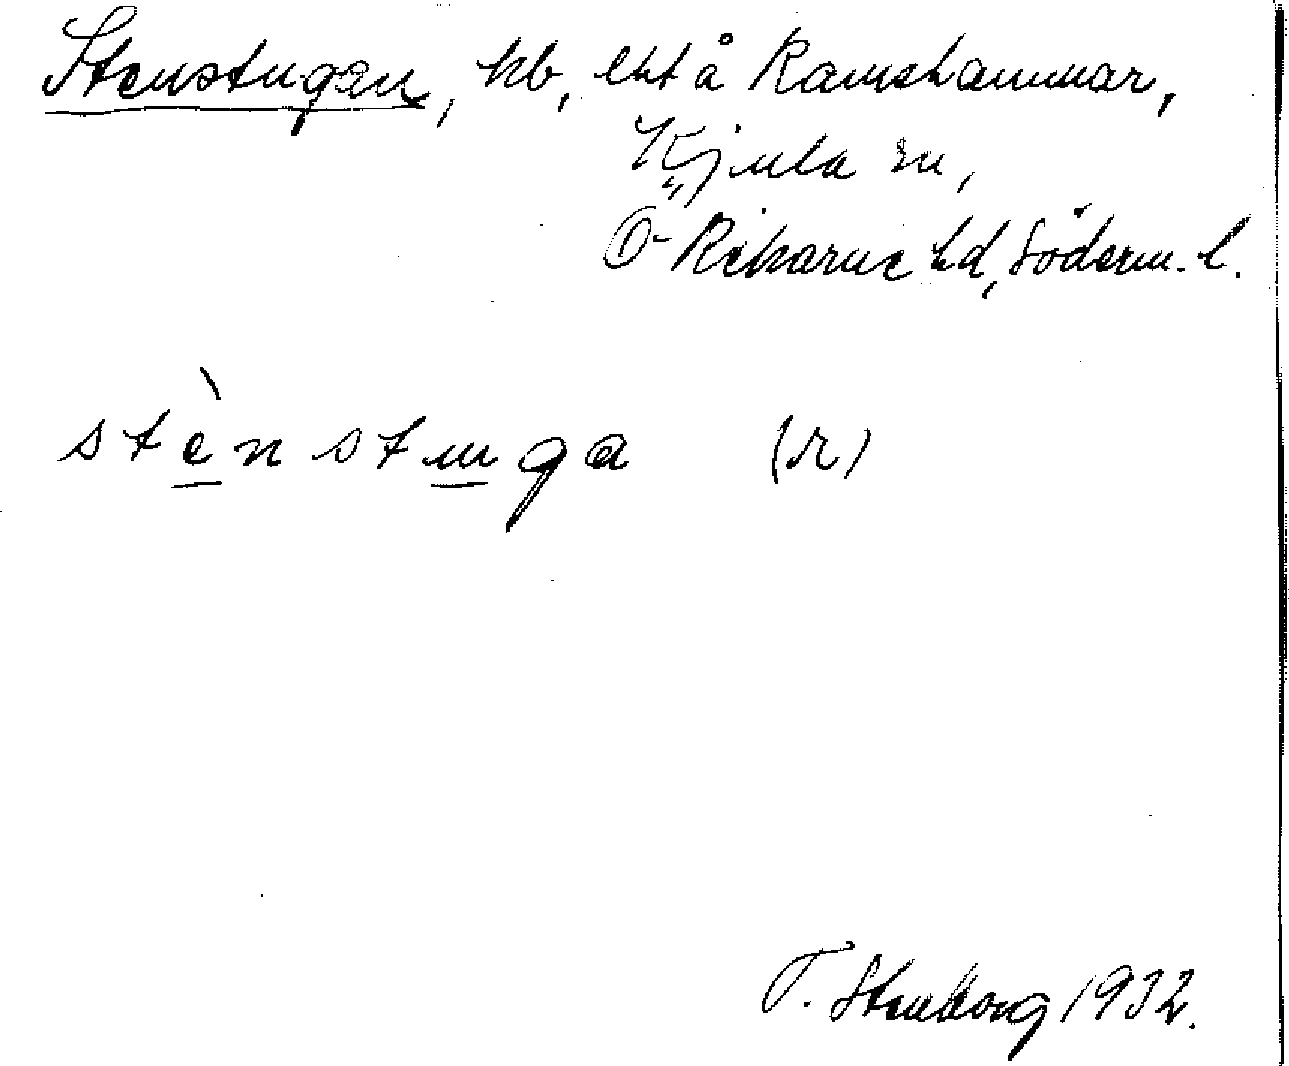 Stenstugan, kb, lht å Ramshammar,
Kjula sn,
Ö-Rekarne hd, Söderm. l.
stènstuga (r)
T. Stenborg 1932.